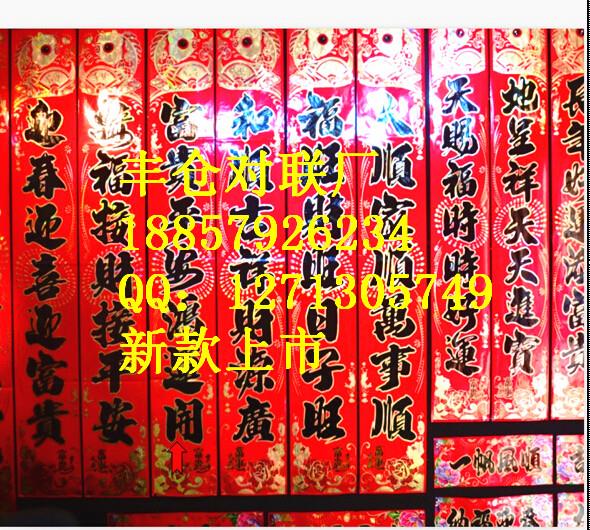 丰仓对联厂
18857926234
QQ：1271305749
新款上市
迎春迎喜迎富貴
接福接財接平安
富貴平安鴻運開
和順吉祥財源廣
福旺財旺日子旺
人順家順萬事順
天賜福時時好運
地呈祥天天進寶
長年好運添富貴
一帆風順
納福迎春